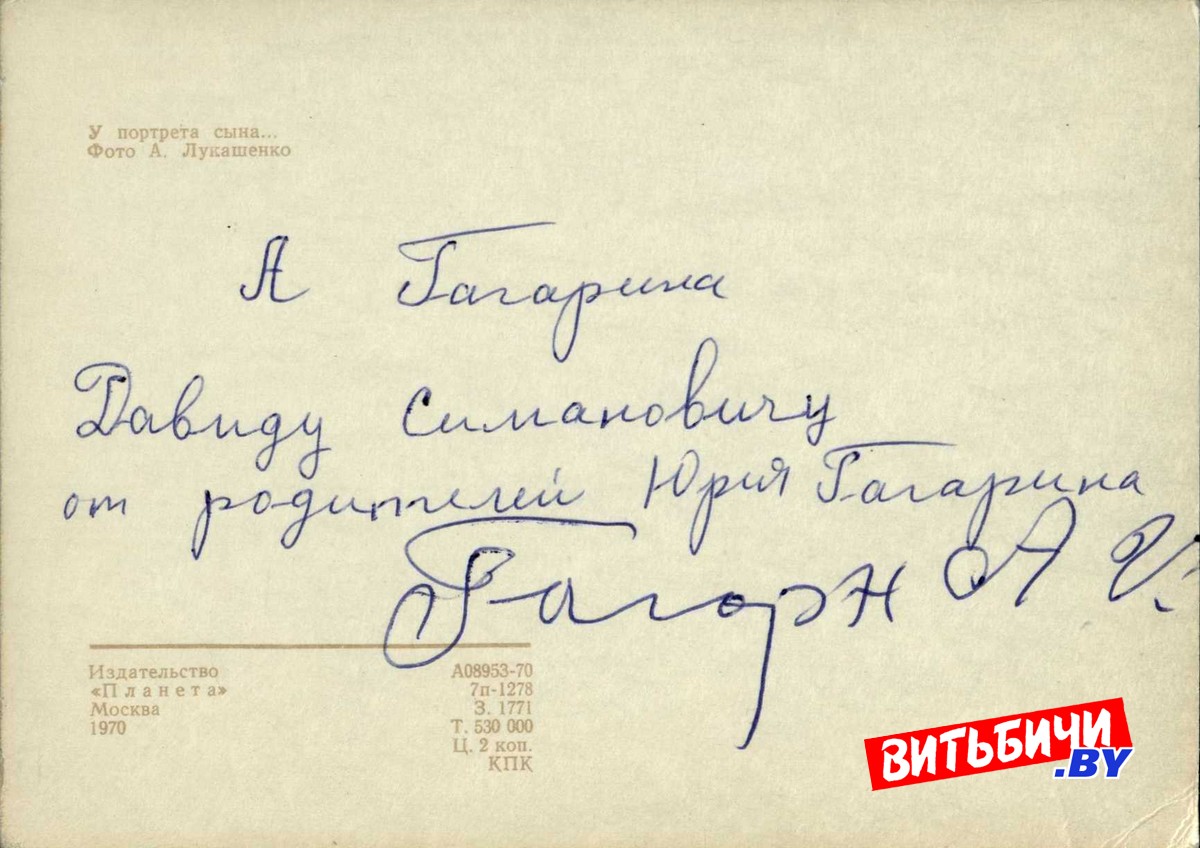 У портрета сына...
Фото А. Лукашенко
А Гагарина
Давиду Симановичу
от родителей Юрия Гагарина
Гагарн А И.
Издательство
«Планета»
Москва
1970
А08953-70
7п-1278
З. 1771
Т. 530 000
Ц. 2 коп.
КПК
ВИТЬБИЧИ
.BY